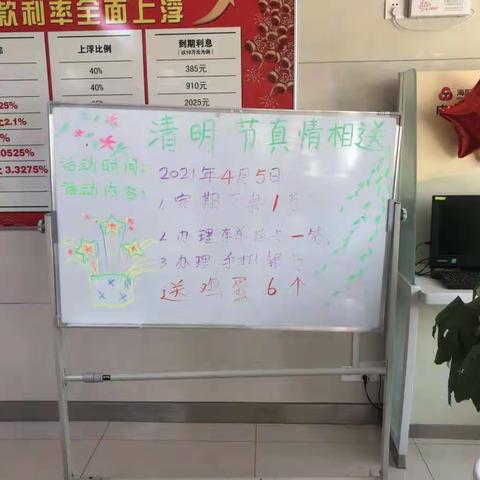 款利率全面上浮
上浮比例
到期利息
（以10万元为例）
40%
385元
40%
910元
2025元
25%
2.1%
0525%
3.3275%
清明节真情相送
活动时间：2021年4月5日
活动内容：1.定期
2.办理
3.办理手机银行
送鸡蛋6个